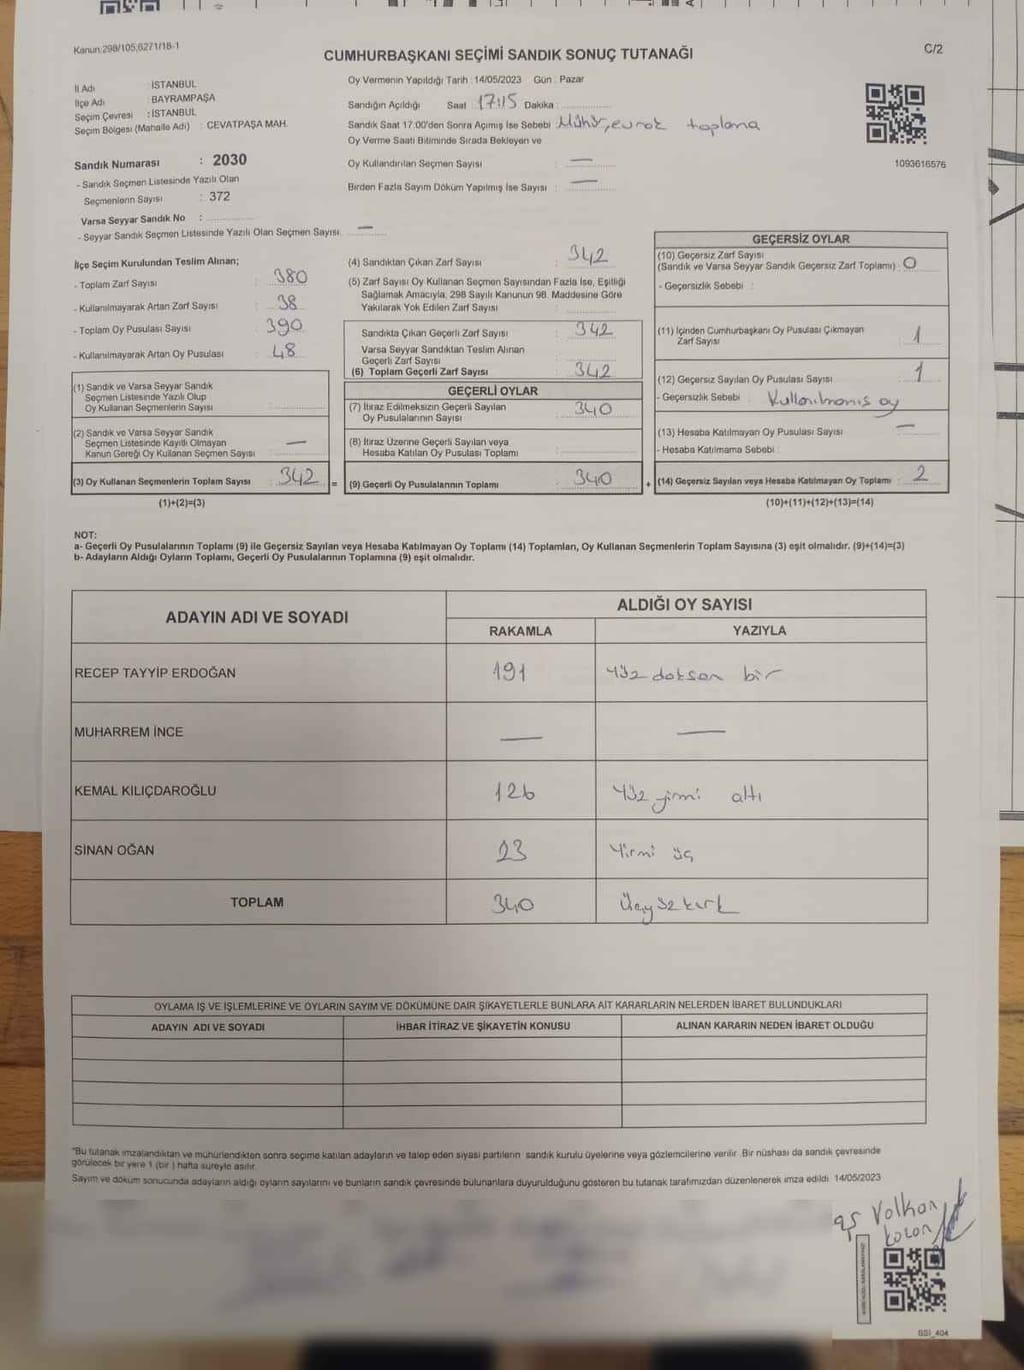 Kanun:298/105,6271/18-1
CUMHURBAŞKANI SEÇİMİ SANDIK SONUÇ TUTANAĞI
C/2
İl Adı : İSTANBUL
İlçe Adı : BAYRAMPAŞA
Seçim Çevresi : İSTANBUL
Seçim Bölgesi (Mahalle Adı) : CEVATPAŞA MAH.
Oy Vermenin Yapıldığı Tarih : 14/05/2023 Gün : Pazar
Sandığın Açıldığı Saat 17:15 Dakika :
Sandık Saat 17:00'den Sonra Açımış İse Sebebi : Mühür, evrak toplama
Oy Verme Saati Bitiminde Sırada Bekleyen ve
Oy Kullandırılan Seçmen Sayısı : —
Birden Fazla Sayım Döküm Yapılmış İse Sayısı : —
1093616576
Sandık Numarası : 2030
- Sandık Seçmen Listesinde Yazılı Olan
Seçmenlerin Sayısı : 372
Varsa Seyyar Sandık No :
- Seyyar Sandık Seçmen Listesinde Yazılı Olan Seçmen Sayısı : —
İlçe Seçim Kurulundan Teslim Alınan;
- Toplam Zarf Sayısı : 380
- Kullanılmayarak Artan Zarf Sayısı : 38
- Toplam Oy Pusulası Sayısı : 390
- Kullanılmayarak Artan Oy Pusulası : 48
(1) Sandık ve Varsa Seyyar Sandık
Seçmen Listesinde Yazılı Olup
Oy Kullanan Seçmenlerin Sayısı :
(2) Sandık ve Varsa Seyyar Sandık
Seçmen Listesinde Kayıtlı Olmayan
Kanun Gereği Oy Kullanan Seçmen Sayısı : —
(3) Oy Kullanan Seçmenlerin Toplam Sayısı : 342
(1)+(2)=(3)
(4) Sandıktan Çıkan Zarf Sayısı : 342
(5) Zarf Sayısı Oy Kullanan Seçmen Sayısından Fazla İse, Eşitliği
Sağlamak Amacıyla, 298 Sayılı Kanunun 98. Maddesine Göre
Yakılarak Yok Edilen Zarf Sayısı :
Sandıkta Çıkan Geçerli Zarf Sayısı : 342
Varsa Seyyar Sandıktan Teslim Alınan
Geçerli Zarf Sayısı :
(6) Toplam Geçerli Zarf Sayısı : 342
GEÇERLİ OYLAR
(7) İtiraz Edilmeksizin Geçerli Sayılan : 340
Oy Pusulalarının Sayısı
(8) İtiraz Üzerine Geçerli Sayılan veya
Hesaba Katılan Oy Pusulası Toplamı :
(9) Geçerli Oy Pusulalarının Toplamı : 340
=
+
GEÇERSİZ OYLAR
(10) Geçersiz Zarf Sayısı
(Sandık ve Varsa Seyyar Sandık Geçersiz Zarf Toplamı) : 0
- Geçersizlik Sebebi :
(11) İçinden Cumhurbaşkanı Oy Pusulası Çıkmayan
Zarf Sayısı : 1
(12) Geçersiz Sayılan Oy Pusulası Sayısı : 1
- Geçersizlik Sebebi : Kullanılmamış oy
(13) Hesaba Katılmayan Oy Pusulası Sayısı : —
- Hesaba Katılmama Sebebi :
(14) Geçersiz Sayılan veya Hesaba Katılmayan Oy Toplamı : 2
(10)+(11)+(12)+(13)=(14)
NOT:
a- Geçerli Oy Pusulalarının Toplamı (9) ile Geçersiz Sayılan veya Hesaba Katılmayan Oy Toplamı (14) Toplamları, Oy Kullanan Seçmenlerin Toplam Sayısına (3) eşit olmalıdır. (9)+(14)=(3)
b- Adayların Aldığı Oyların Toplamı, Geçerli Oy Pusulalarının Toplamına (9) eşit olmalıdır.
ADAYIN ADI VE SOYADI
ALDIĞI OY SAYISI
RAKAMLA YAZIYLA
RECEP TAYYİP ERDOĞAN 191 Yüz doksan bir
MUHARREM İNCE — —
KEMAL KILIÇDAROĞLU 126 Yüz yirmi altı
SİNAN OĞAN 23 Yirmi üç
TOPLAM 340 Üçyüz kırk
OYLAMA İŞ VE İŞLEMLERİNE VE OYLARIN SAYIM VE DÖKÜMÜNE DAİR ŞİKAYETLERLE BUNLARA AİT KARARLARIN NELERDEN İBARET BULUNDUKLARI
ADAYIN ADI VE SOYADI İHBAR İTİRAZ VE ŞİKAYETİN KONUSU ALINAN KARARIN NEDEN İBARET OLDUĞU
"Bu tutanak imzalandıktan ve mühürlendikten sonra seçime katılan adayların ve talep eden siyasi partilerin sandık kurulu üyelerine veya gözlemcilerine verilir .Bir nüshası da sandık çevresinde
görülecek bir yere 1 (bir ) hafta süreyle asılır.
Sayım ve döküm sonucunda adayların aldığı oyların sayılarını ve bunların sandık çevresinde bulunanlara duyurulduğunu gösteren bu tutanak tarafımızdan düzenlenerek imza edildi. 14/05/2023
aş Volkan
kozan
SSI_404